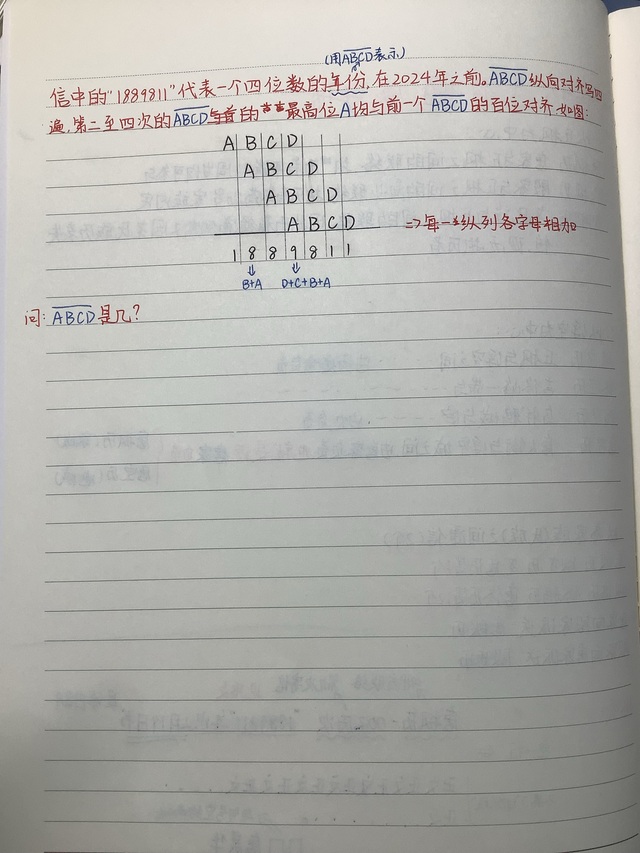 (用ABCD表示)
信中的"1889811"代表一个四位数的年份,在2024年之前。ABCD纵向对齐写四
遍,第二至四次的ABCD最高位A均与前一个ABCD的百位对齐,如图:
A B C D
A B C D
A B C D
A B C D ⇒每一纵列各字母相加
1 8 8 9 8 1 1
⇓ ⇓
B+A D+C+B+A
问:ABCD是几?